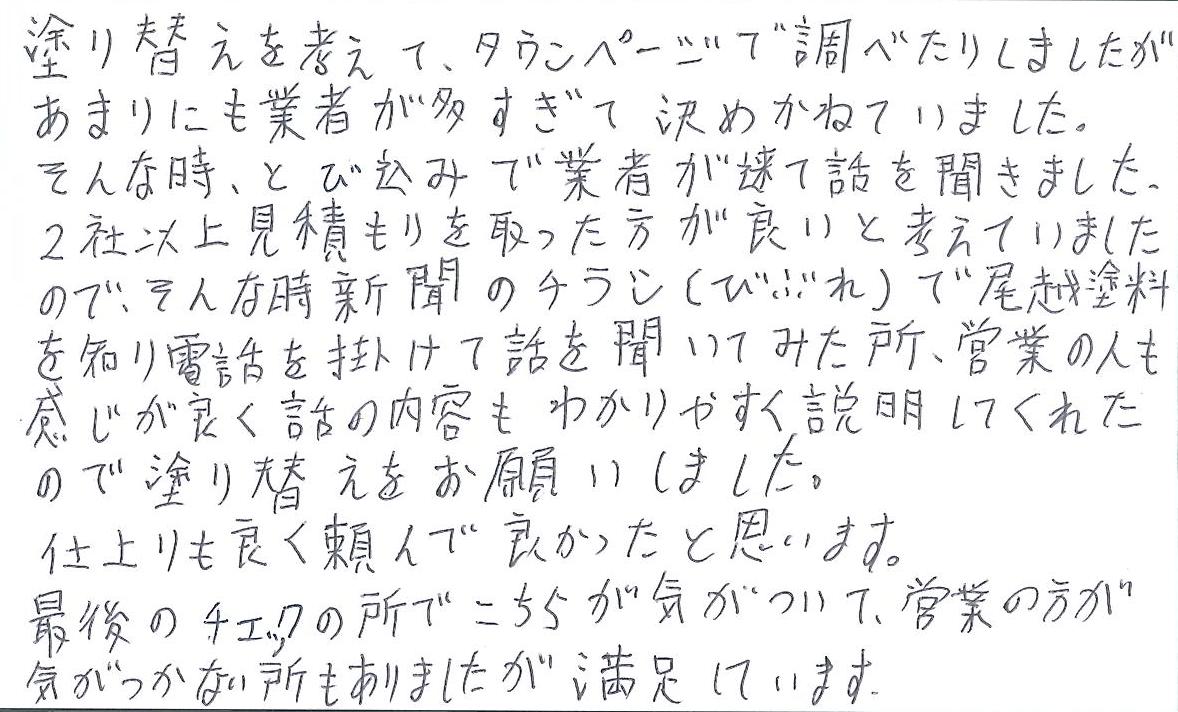 塗り替えを考えて、タウンページで調べたりしましたが
あまりにも業者が多すぎて決めかねていました。
そんな時、とび込みで業者が来て話を聞きました、
2社以上見積もりを取った方が良いと考えていました
ので、そんな時新聞のチラシ(びぶれ)で尾越塗料
を知り電話を掛けて話を聞いてみた所、営業の人も
感じが良く話の内容もわかりやすく説明してくれた
ので塗り替えをお願いしました。
仕上りも良く頼んで良かったと思います。
最後のチェックの所でこちらが気がついて、営業の方が
気がつかない所もありましたが満足しています.